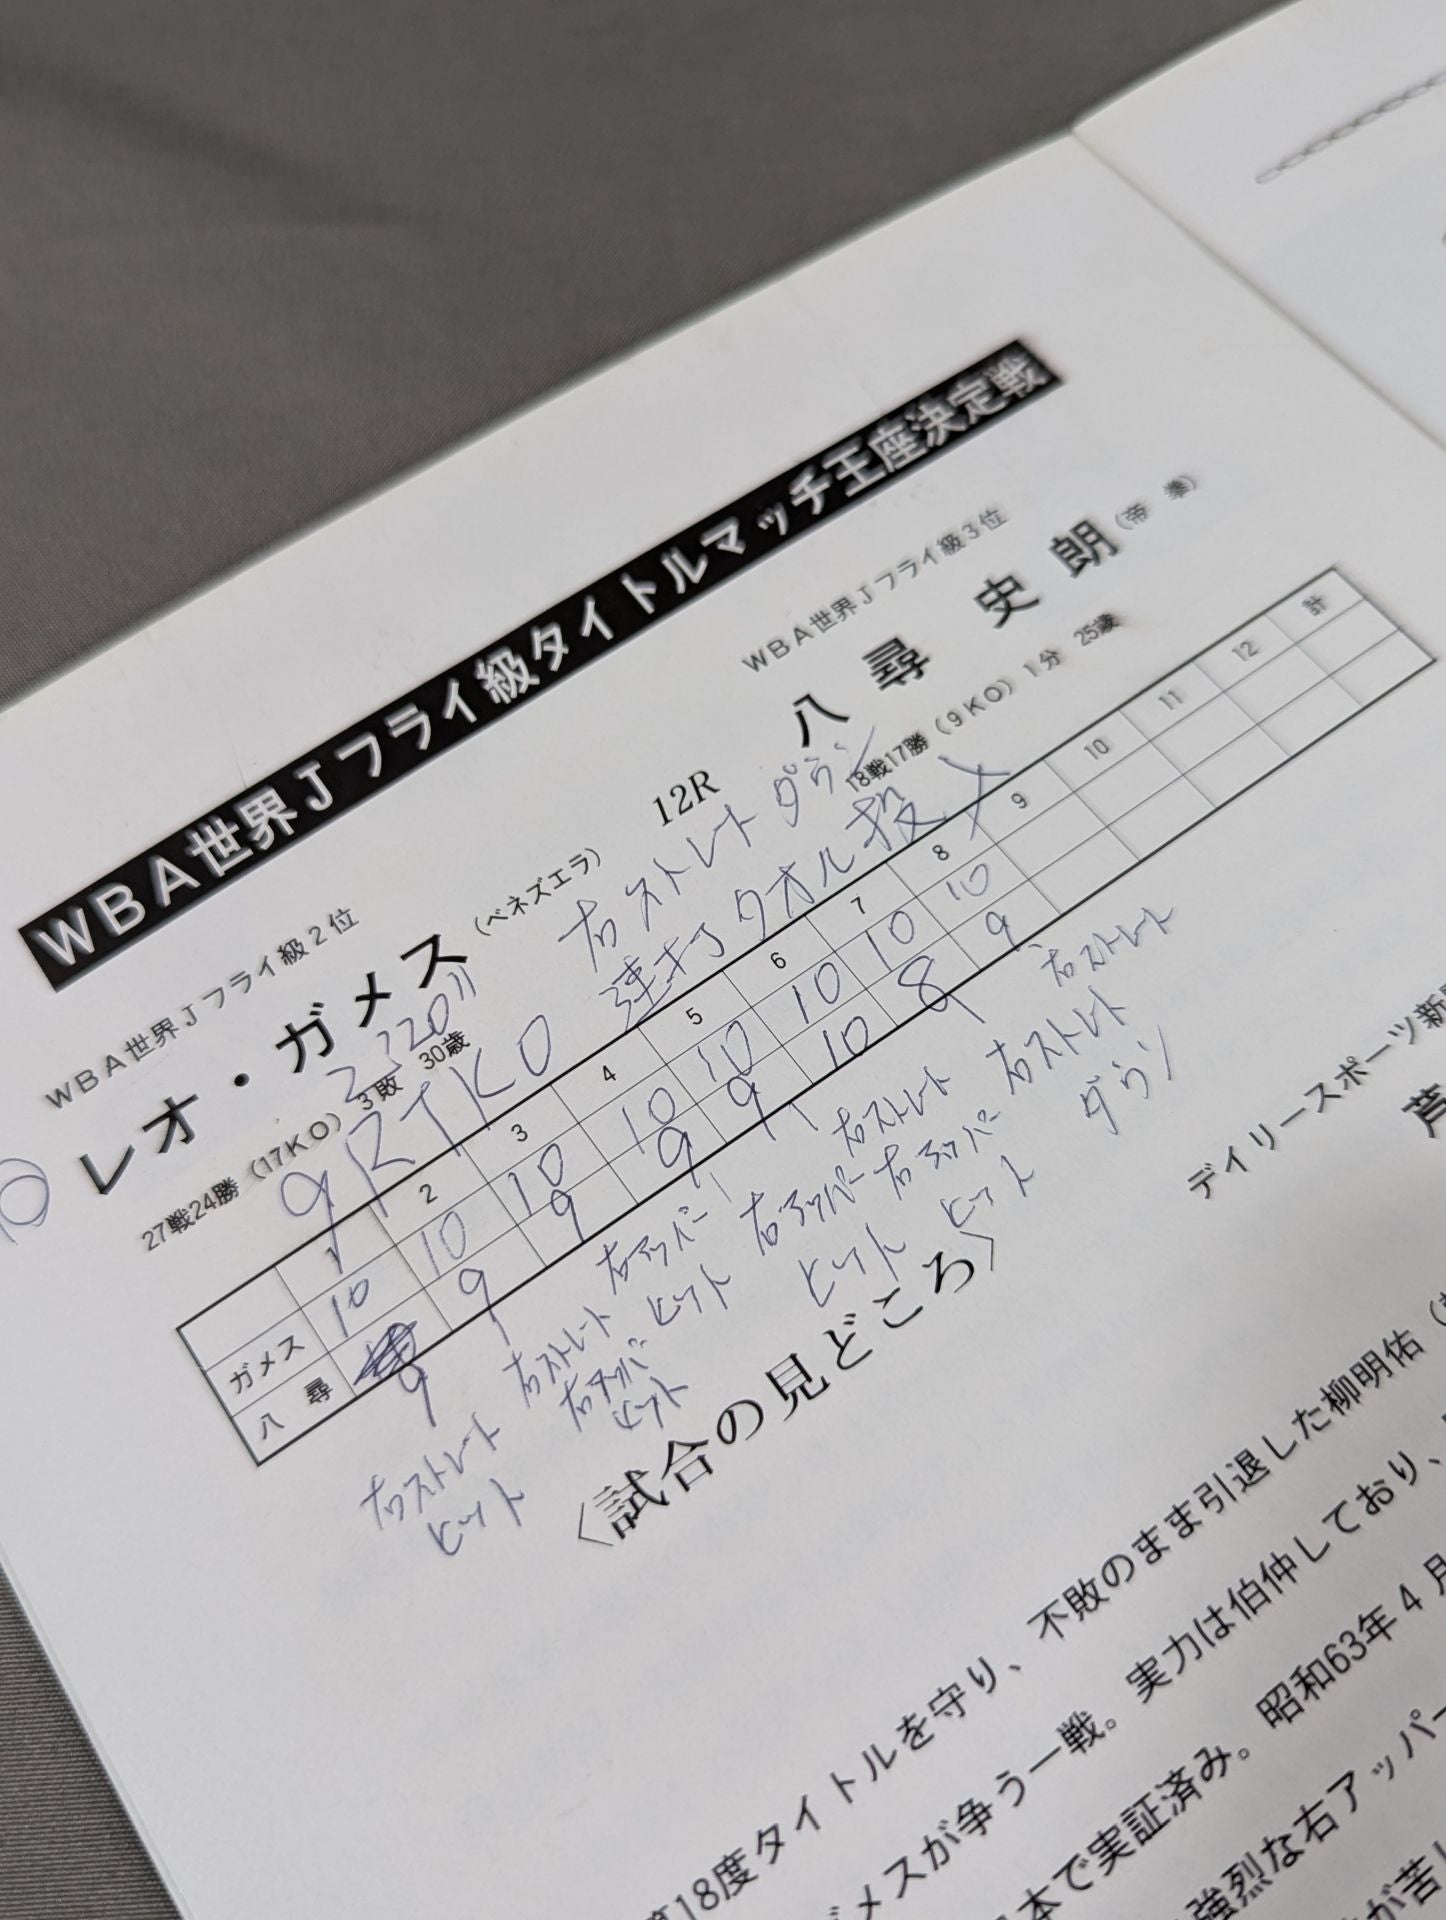 WBA世界Jフライ級タイトルマッチ王座決定戦
WBA世界Jフライ級2位
レオ・ガメス(ベネズエラ)
27戦24勝(17KO)3敗 30歳
12R
WBA世界Jフライ級3位
八尋史朗(帝 拳)
18戦17勝(9KO)1分 25歳
9RTKO
右ストレート ダウン
連打 タオル投入
1 2 3 4 5 6 7 8 9 10 11 12 計
ガメス 10 10 10 10 10 10 10 10
八尋 9 9 9 9 9 10 8 9
右ストレート
ヒット
右ストレート
右アッパー
ヒット
右アッパー
ヒット
右ストレート
右アッパー
ヒット
右ストレート
右アッパー
ヒット
右ストレート
ダウン
〈試合の見どころ〉
デイリースポーツ新
芦
18度タイトルを守り、不敗のまま引退した柳明佑(
メスが争う一戦。実力は伯仲しており、
本で実証済み。昭和63年4月
強烈な右アッパー
が苦し